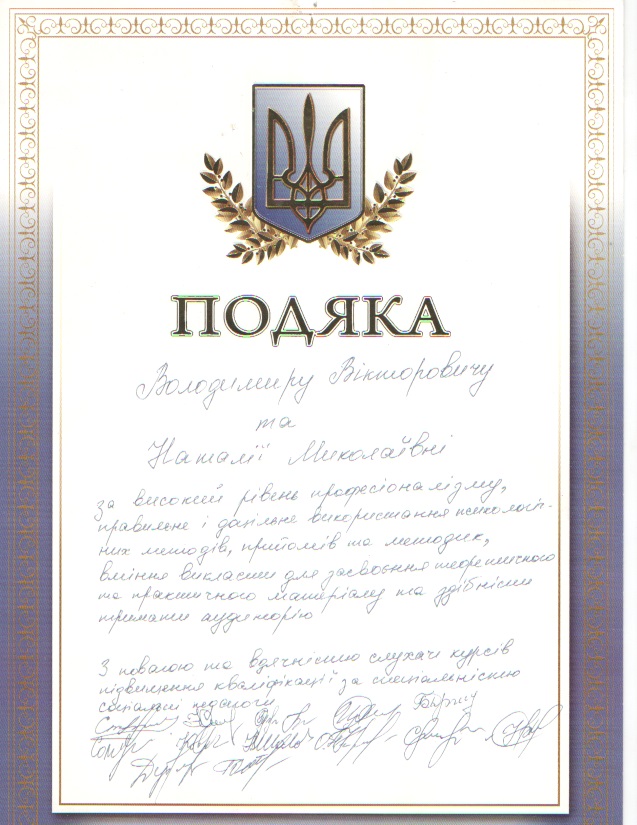 ПОДЯКА
Володимиру Вікторовичу
та
Наталії Миколаївні
за високий рівень професіоналізму,
правильне і доцільне використання психологіч-
них методів, прийомів та методик,
вміння викласти для засвоєння теоретичного
та практичного матеріалу та здібністи
тримати аудиторію
З повагою та вдячністю слухачі курсів
підвищення кваліфікації за спеціальністю
соціальні педагоги